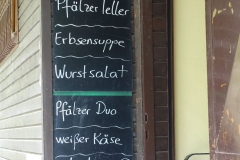 Pfälzer Teller
Erbsensuppe
Wurstsalat
Pfälzer Duo
weißer Käse